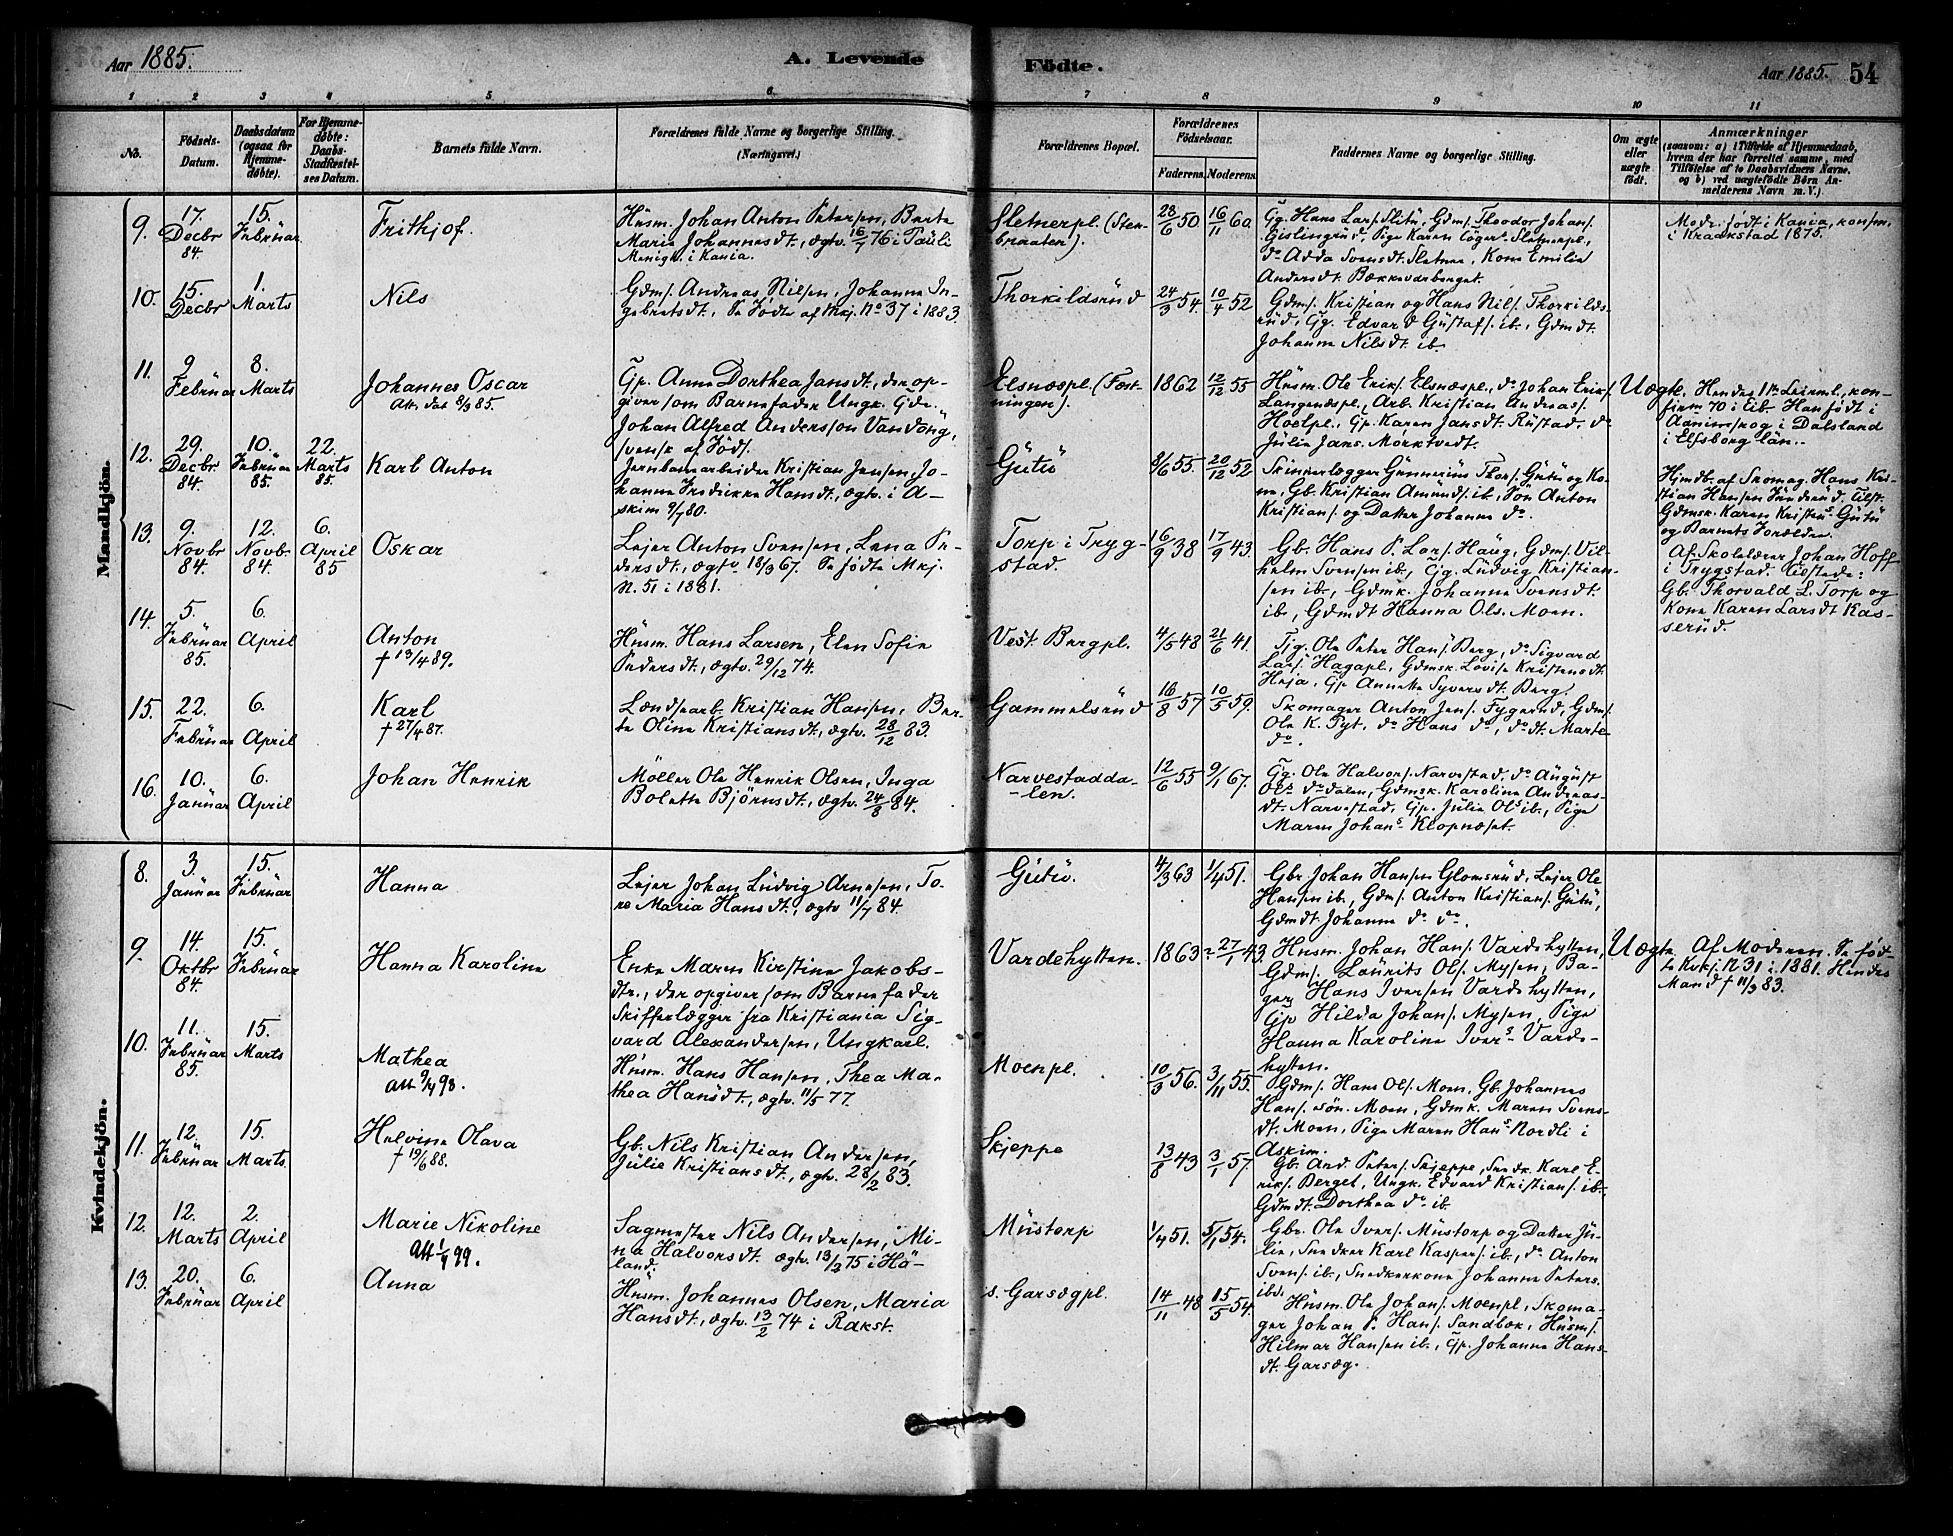 Aar 1885.
A. Levende
Fødte.
Aar 1885. 54
1 2 3 4 5 6 7 8 9 10 11
No.
Fødsels-
Datum.
Daabsdatum
(ogsaa for
Hjemme-
døbte).
For Hjemme-
døbte:
Daabs-
Stadfæstel-
ses Datum.
Barnets fulde Navn.
Forældrenes fulde Navne og borgerlige Stilling.
(Næringsvei.)
Forældrenes Bopæl.
Forældrenes
Fødselsaar.
Faderens. Moderens.
Faddernes Navne og borgerlige Stilling.
Om ægte
eller
uægte
født.
Anmærkninger
(saasom: a) i Tilfælde af Hjemmedaab,
hvem der har forrettet samme, med
Tilføielse af to Daabsvidners Navne,
og b) ved uægtefødte Børn An-
melderens Navn m. V.)
Mandkjøn.
9.
17.
Decbr
84.
15.
Februar
Frithjof.
Husm. Johan Anton Petersen, Berte
Maria Johannesdt., ægtv. 16/7 76 i Pauli
Menigh. i Kania.
Sletnerpl. (Sten-
braaten).
28/6 50. 16/11 60.
Gg. Hans Lars. Slitu, Gdms. Theodor Johans.
Gislingrud, Pige Karen Sletnerpl.,
do Adda Svensdt. Sletner, Kone Emilie
Andersdt. Bækkevarberget.
Modr. født i Kania, konfirm.
i Kraakstad 1875.
10.
15.
Decbr
1.
Marts
Nils
Gdms. Andreas Nilsen, Johanne In-
gebretsdt., Se Fødte af Mkj. No 37 i 1883.
Thorkildsrud
24/3 54. 10/4 52
Gdms. Kristian og Hans Nils. Thorkilds-
rud, Gg. Edvard Gustafs. ib., Gdmdt.
Johanne Nilsdt. ib.
11.
9
Februar
8.
Marts
Johannes Oscar
Att. dat 8/9 85.
Gp. Anne Dorthea Jansdt., der op-
giver som Barnefader Ungk. Gdr.
Johan Alfred Andersson Vandong,
svensk af Føds.
Elsnæspl. (Fost-
ningen).
1862 12/12 55
Husm. Ole Eriks. Elsnæspl., do Johan Eriks.
Langenæspl., Arb. Kristian Andreas.
Hoelpl., Gp. Karen Jansdt. Rustad, do
Julie Jans. Mørktvedt.
Uægte.
Hendes 1ste Leierml., kon-
firm 70 i Eib. Han født i
Aanimskog i Dalsland
i Elfsborg län.
12.
29.
Decbr
84.
10.
Februar
85.
22.
Marts
85.
Karl Anton
Jernbanarbeider Kristian Jensen, Jo-
hanne Fredikke Hansdt., ægtv. i A-
skim 9/7 80.
Gutu
8/6 55. 20/12 52
Skinnerlegger Gunnerius Thors. Gutu og Ko-
ne, Gb. Kristian Amunds. ib., Søn Anton
Kristians. og Datter Johanne do.
Hjmdb. af Skomag. Hans Kri-
stian Hansen Funderud. Tilst.
Gdmsk. Karen Kristens. Gutu
og Barnets Forældre.
13.
9.
Novbr
84.
12.
Novb.
84.
6.
April
85
Oskar
Leier Anton Svensen, Lena Pe-
dersdt., ægtv. 18/3 67. Se fødte Mkj.
N. 51 i 1881.
Torp i Tryg-
stad.
16/9 38 17/9 43.
Gb. Hans P. Lars. Haug, Gdms. Vil-
helm Svensen ib., Gg. Ludvig Kristian-
sen ib., Gdmk. Johanne Svensdt.
ib., Gdmdt Hanna Ols. Moen.
Af Skolelærer Johan Hoff
i Trygstad. Tilstede:
Gb. Thorvald L. Torp og
Kone Karen Larsdt Kas-
serud.
14.
5.
Februar
85.
6.
April
Anton
† 13/4 89.
Husm. Hans Larsen, Elen Sofie
Pedersdt., ægtv. 29/12 74.
Vest. Bergpl.
4/5 48 21/6 41.
Tjg. Ole Peter Hans. Berg, do Sigvard
Lars. Hagapl., Gdmsk. Lovise Kristensdt.
Heja, Gp. Annette Syversdt. Berg.
15.
22.
Februar
6.
April
Karl
† 27/4 87.
Landsarb. Kristian Hansen, Ber-
te Oline Kristiansdt., ægtv. 28/12 83.
Gammelsrud
16/8 57 10/5 59.
Skomager Anton Jens. Fygerud, Gdms.
Ole K. Pyt, do Hans do, do dt. Marte
do.
16.
10.
Januar
6.
April
Johan Henrik
Møller Ole Henrik Olsen, Inga
Bolette Bjørnsdt., ægtv. 24/8 84.
Narvestadda-
-len.
12/6 55 9/1 67.
Tg. Ole Halvors. Narvestad, do August
Ols do dalen, Gdmsk. Karoline Andreas-
dt. Narvestad, Gp. Julie Ols ib., Pige
Maren Johans. Klopnæset.
Kvindekjøn.
8.
3.
Januar
15.
Februar
Hanna
Leier Johan Ludvig Arnesen, To-
re Maria Hansdt., ægtv 11/7 84.
Gutu.
4/3 63 1/4 51.
Gbr Johan Hansen Glomsrud, Leier Ole
Hansen ib., Gdms. Anton Kristians. Gutu,
Gdmdt. Johanne do do.
9.
14.
Oktbr
84.
15.
Februar
Hanna Karoline
Enke Maren Kirstine Jakobs-
dtr., der opgiver som Barnefader
Skifferlægger fra Kristiania Sig-
vard Alexandersen, Ungkarl.
Vardehytten.
1863 27/1 43.
Husm. Johan Hans. Vardehytten,
Gdms. Laurits Ols. Mysen, Ba-
ger Hans Iversen Vardehytten,
Gp. Hilda Johans. Mysen, Pige
Hanna Karoline Ivers. Varde-
hytten.
Uægte
Af Moderen. Se fød-
te Kvkj. N 31 i 1881. Hendes
Mand † 11/9 83.
10.
11.
Februar
85.
15.
Marts
Mathea
Att 9/4 98.
Husm. Hans Hansen, Thea Ma-
thea Hansdt., ægtv. 11/5 77.
Moenpl.
10/3 56. 3/11 55.
Gdms. Hans Ols. Moen, Gb. Johannes
Hans. søn. Moen, Gdmk. Maren Svens-
dt. Moen, Pige Maren Hans. Nordli i
Askim.
11.
12.
Februar
15.
Marts.
Helvine Olava
† 19/6 88.
Gb. Nils Kristian Andersen,
Julie Kristiansdt., ægtv. 28/2 83.
Skjeppe
13/8 43 3/1 57.
Gb. And. Peters. Skjeppe, Snedk. Karl E-
riks. Berget, Ungk. Edvard Kristians. ib.,
Gdmdt. Dorthea do ib.
12.
12.
Marts
2.
April
Marie Nikoline
Att 1/4 99.
Sagmester Nils Andersen, Mi-
na Halvorsdt. ægtv. 13/3 75 i Hø-
land.
Mustorp
1/4 51. 5/1 54.
Gbr. Ole Ivers. Mustorp og Datter Ju-
lie, Snedker Karl Kaspers. ib., do Anton
Svens. ib., Snedkerkone Johanne Peters.
ibd.
13.
20.
Februar
6.
April
Anna
Husm. Johannes Olsen, Maria
Hansdt., ægtv. 13/2 74 i Rakst.
s. Garsegpl.
14/11 48 15/5 54.
Husm. Ole Johans. Moenpl., Skoma-
ger Johan P. Hans. Sandbæk, Husms.
Hilmar Hansen ib., Gp. Johanne Hans-
dt. Garsæg.